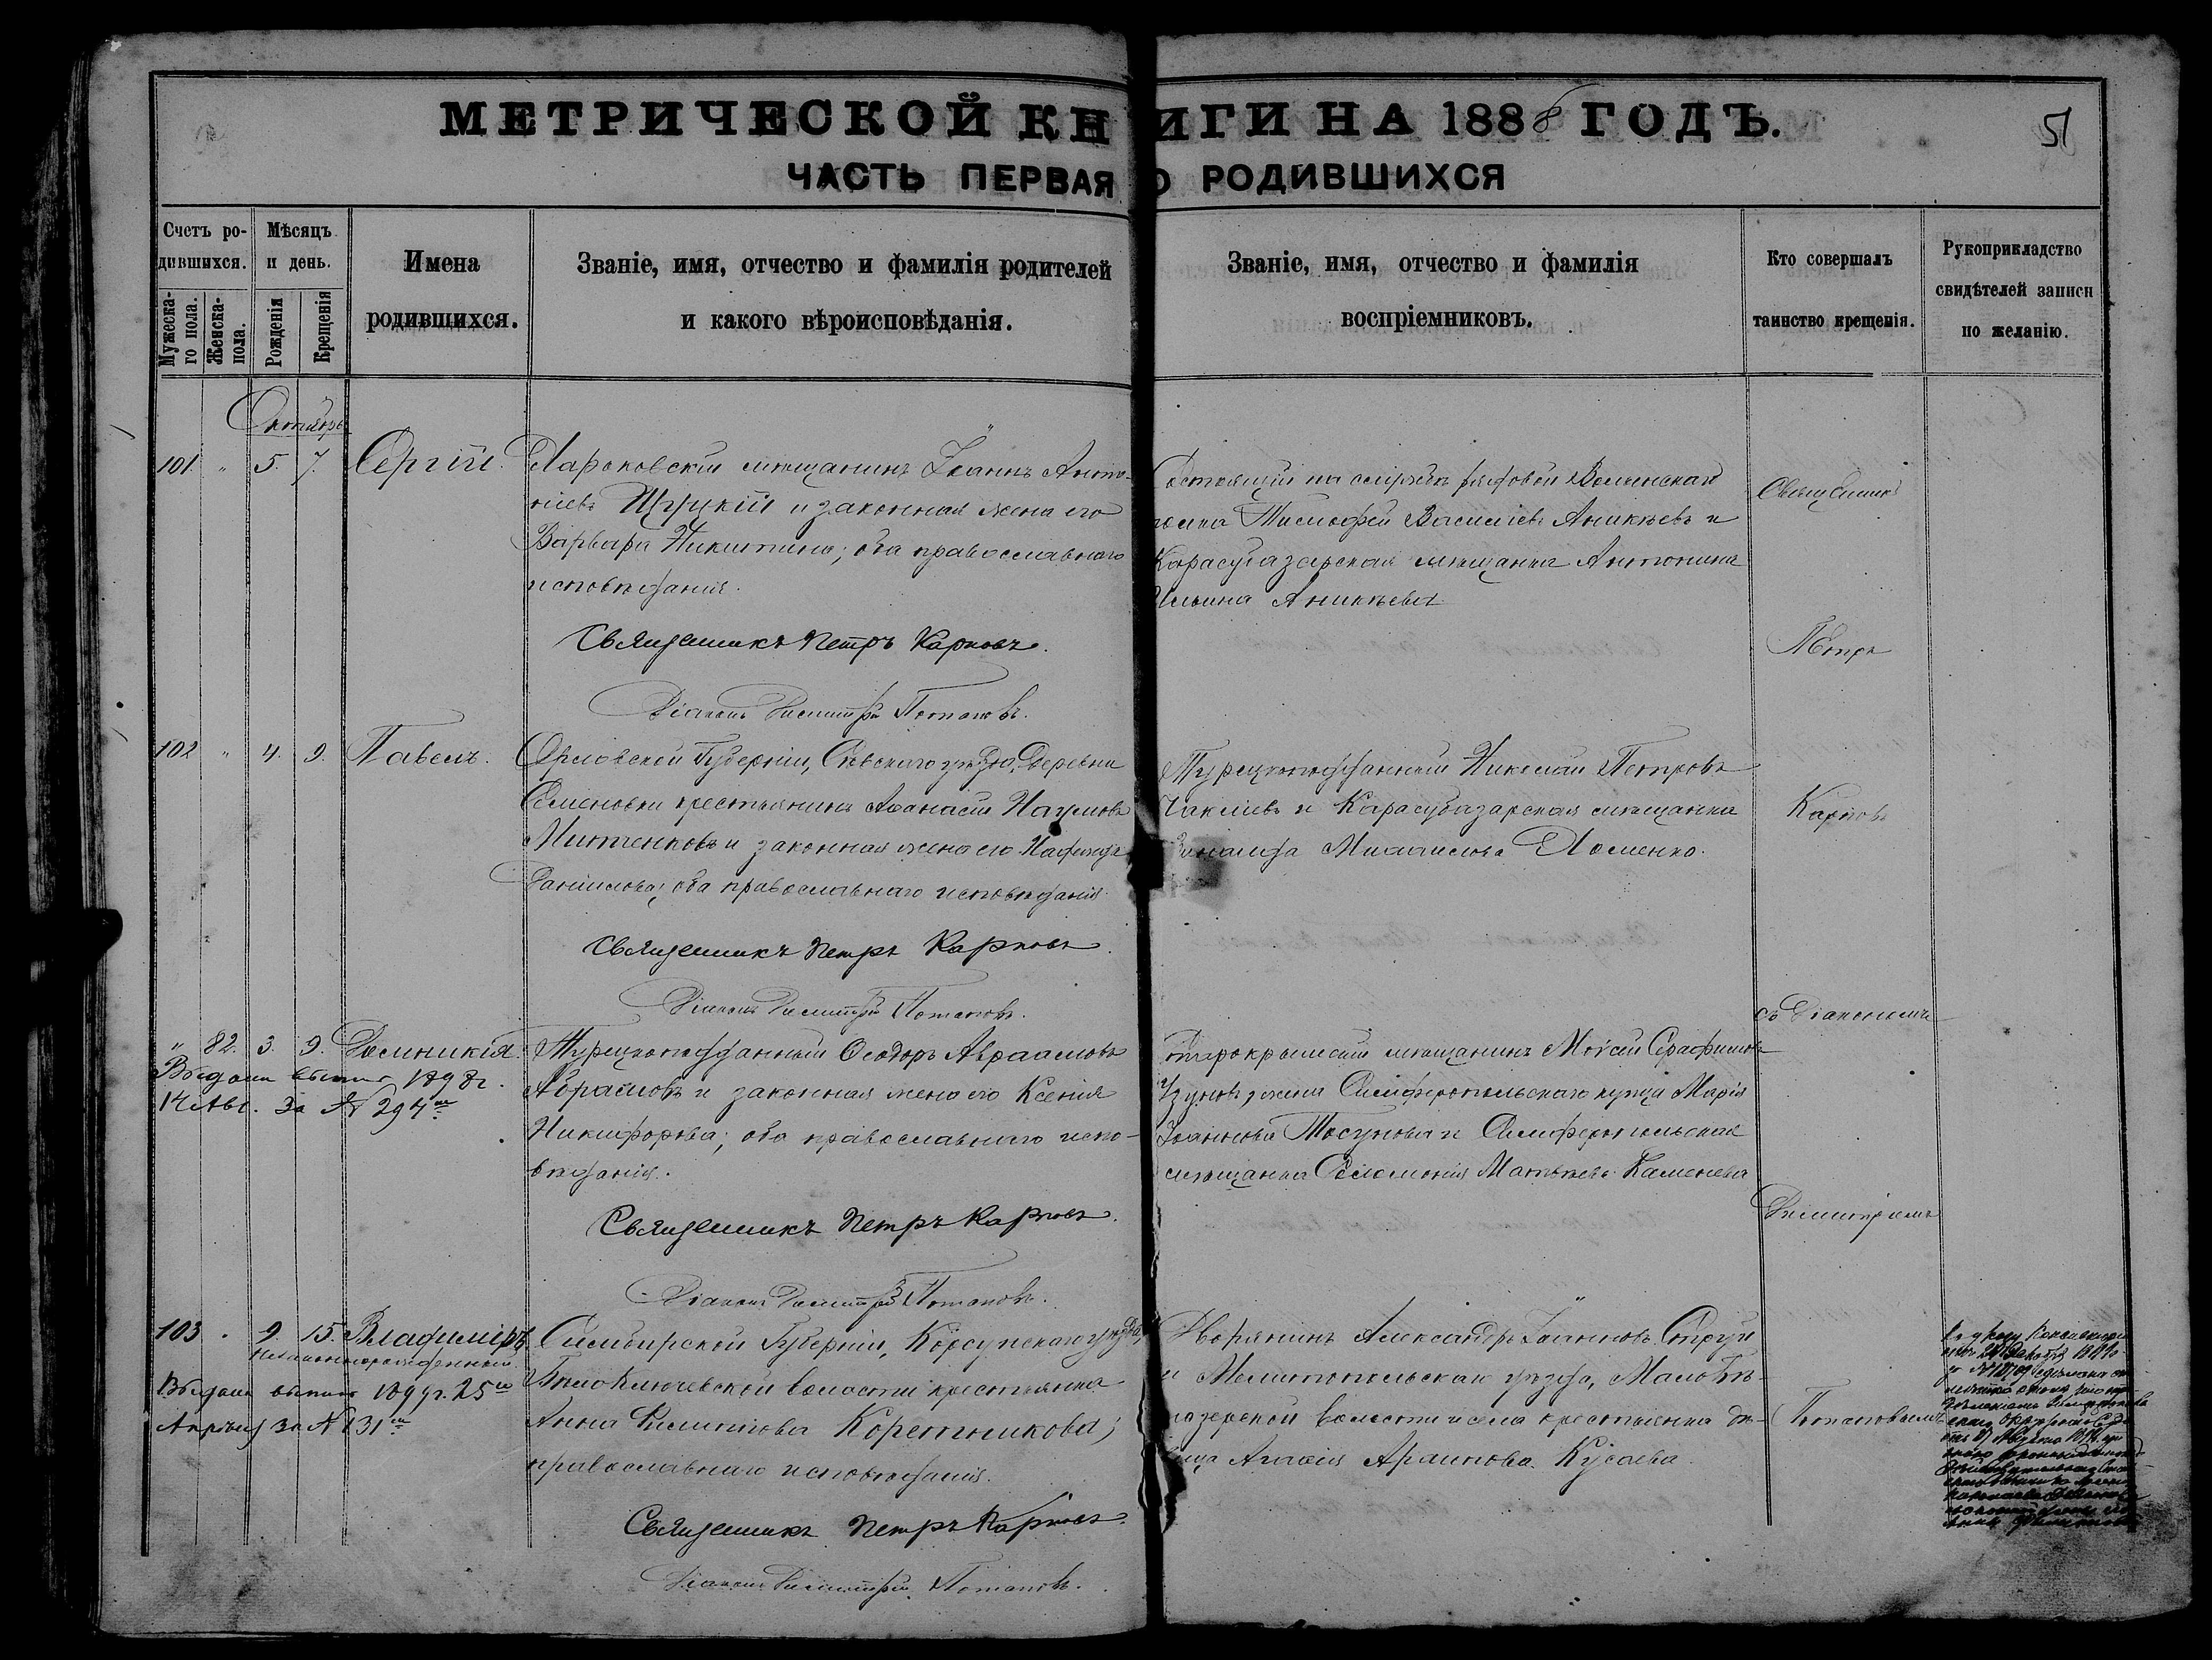 МЕТРИЧЕСКОЙ КНИГИ НА 1888 ГОДЪ.
51
ЧАСТЬ ПЕРВАЯ О РОДИВШИХСЯ
Счетъ родившихся.
Мужеска-го пола.
Женска-пола.
Мѣсяцъ и день.
Рожденія
Крещенія
Имена родившихся.
Званіе, имя, отчество и фамилія родителей
и какого вѣроисповѣданія.
Званіе, имя, отчество и фамилія
воспріемниковъ.
Кто совершалъ
таинство крещенія.
Рукоприкладство
свидѣтелей записи
по желанію.
Октябрь
101 " 5. 7. Сергій.
мѣщанинъ Іоаннъ Анто-
ніевъ и законная жена его
Варвара Никитина; оба православнаго
исповѣданія.
Священникъ Петръ Карповъ.
Діаконъ Димитрій Потаповъ.
рядовой
Тимофей Василіевъ Аникѣевъ и
Карасубазарская мѣщанка Антонина
Ильина Аникѣева
Священникъ
Петръ
Карповъ
съ Діакономъ
Димитріемъ
Потаповымъ
102 " 4. 9. Павелъ.
Орловской Губерніи, Сѣвскаго уѣзда, Деревни
Семеновки крестьянинъ Аѳанасій Наумовъ
Митченковъ и законная жена его
Даніилова; оба православнаго исповѣданія
Священникъ Петръ Карповъ.
Діаконъ Димитрій Потаповъ.
Турецкоподданный Николай Петровъ
и Карасубазарская мѣщанка
Зинаида Михаилова
" 82. 3. 9. Домникія.
Выдана выпись 1898г.
14 Авг. За № 294
Турецкоподданный Ѳеодоръ Авраамовъ
Абрамовъ и законная жена его Ксенія
Никифорова; оба православнаго испо-
вѣданія.
Священникъ Петръ Карповъ.
Діаконъ Димитрій Потаповъ.
Старокрымскій мѣщанинъ Моѵсей Серафимовъ
Узуновъ, жена Симферопольскаго купца Марія
Іоаннова и Симферопольская
мѣщанка Соломонія Матвѣева Каменева
103 " 9. 15. Владиміръ
незаконнорожденный.
Выдана выпись 25
Апрѣля за № 131
Симбирской Губерніи, Корсунскаго уѣзда,
Бѣлоключевской волости крестьянка
Анна Филиппова Коретникова;
православнаго исповѣданія.
Священникъ Петръ Карповъ.
Діаконъ Димитрій Потаповъ.
Дворянинъ Александръ Іоанновъ
и Мелитопольскаго уѣзда, Малобѣ-
лозерской волости и села крестьянка дѣ-
вица Кусаева.